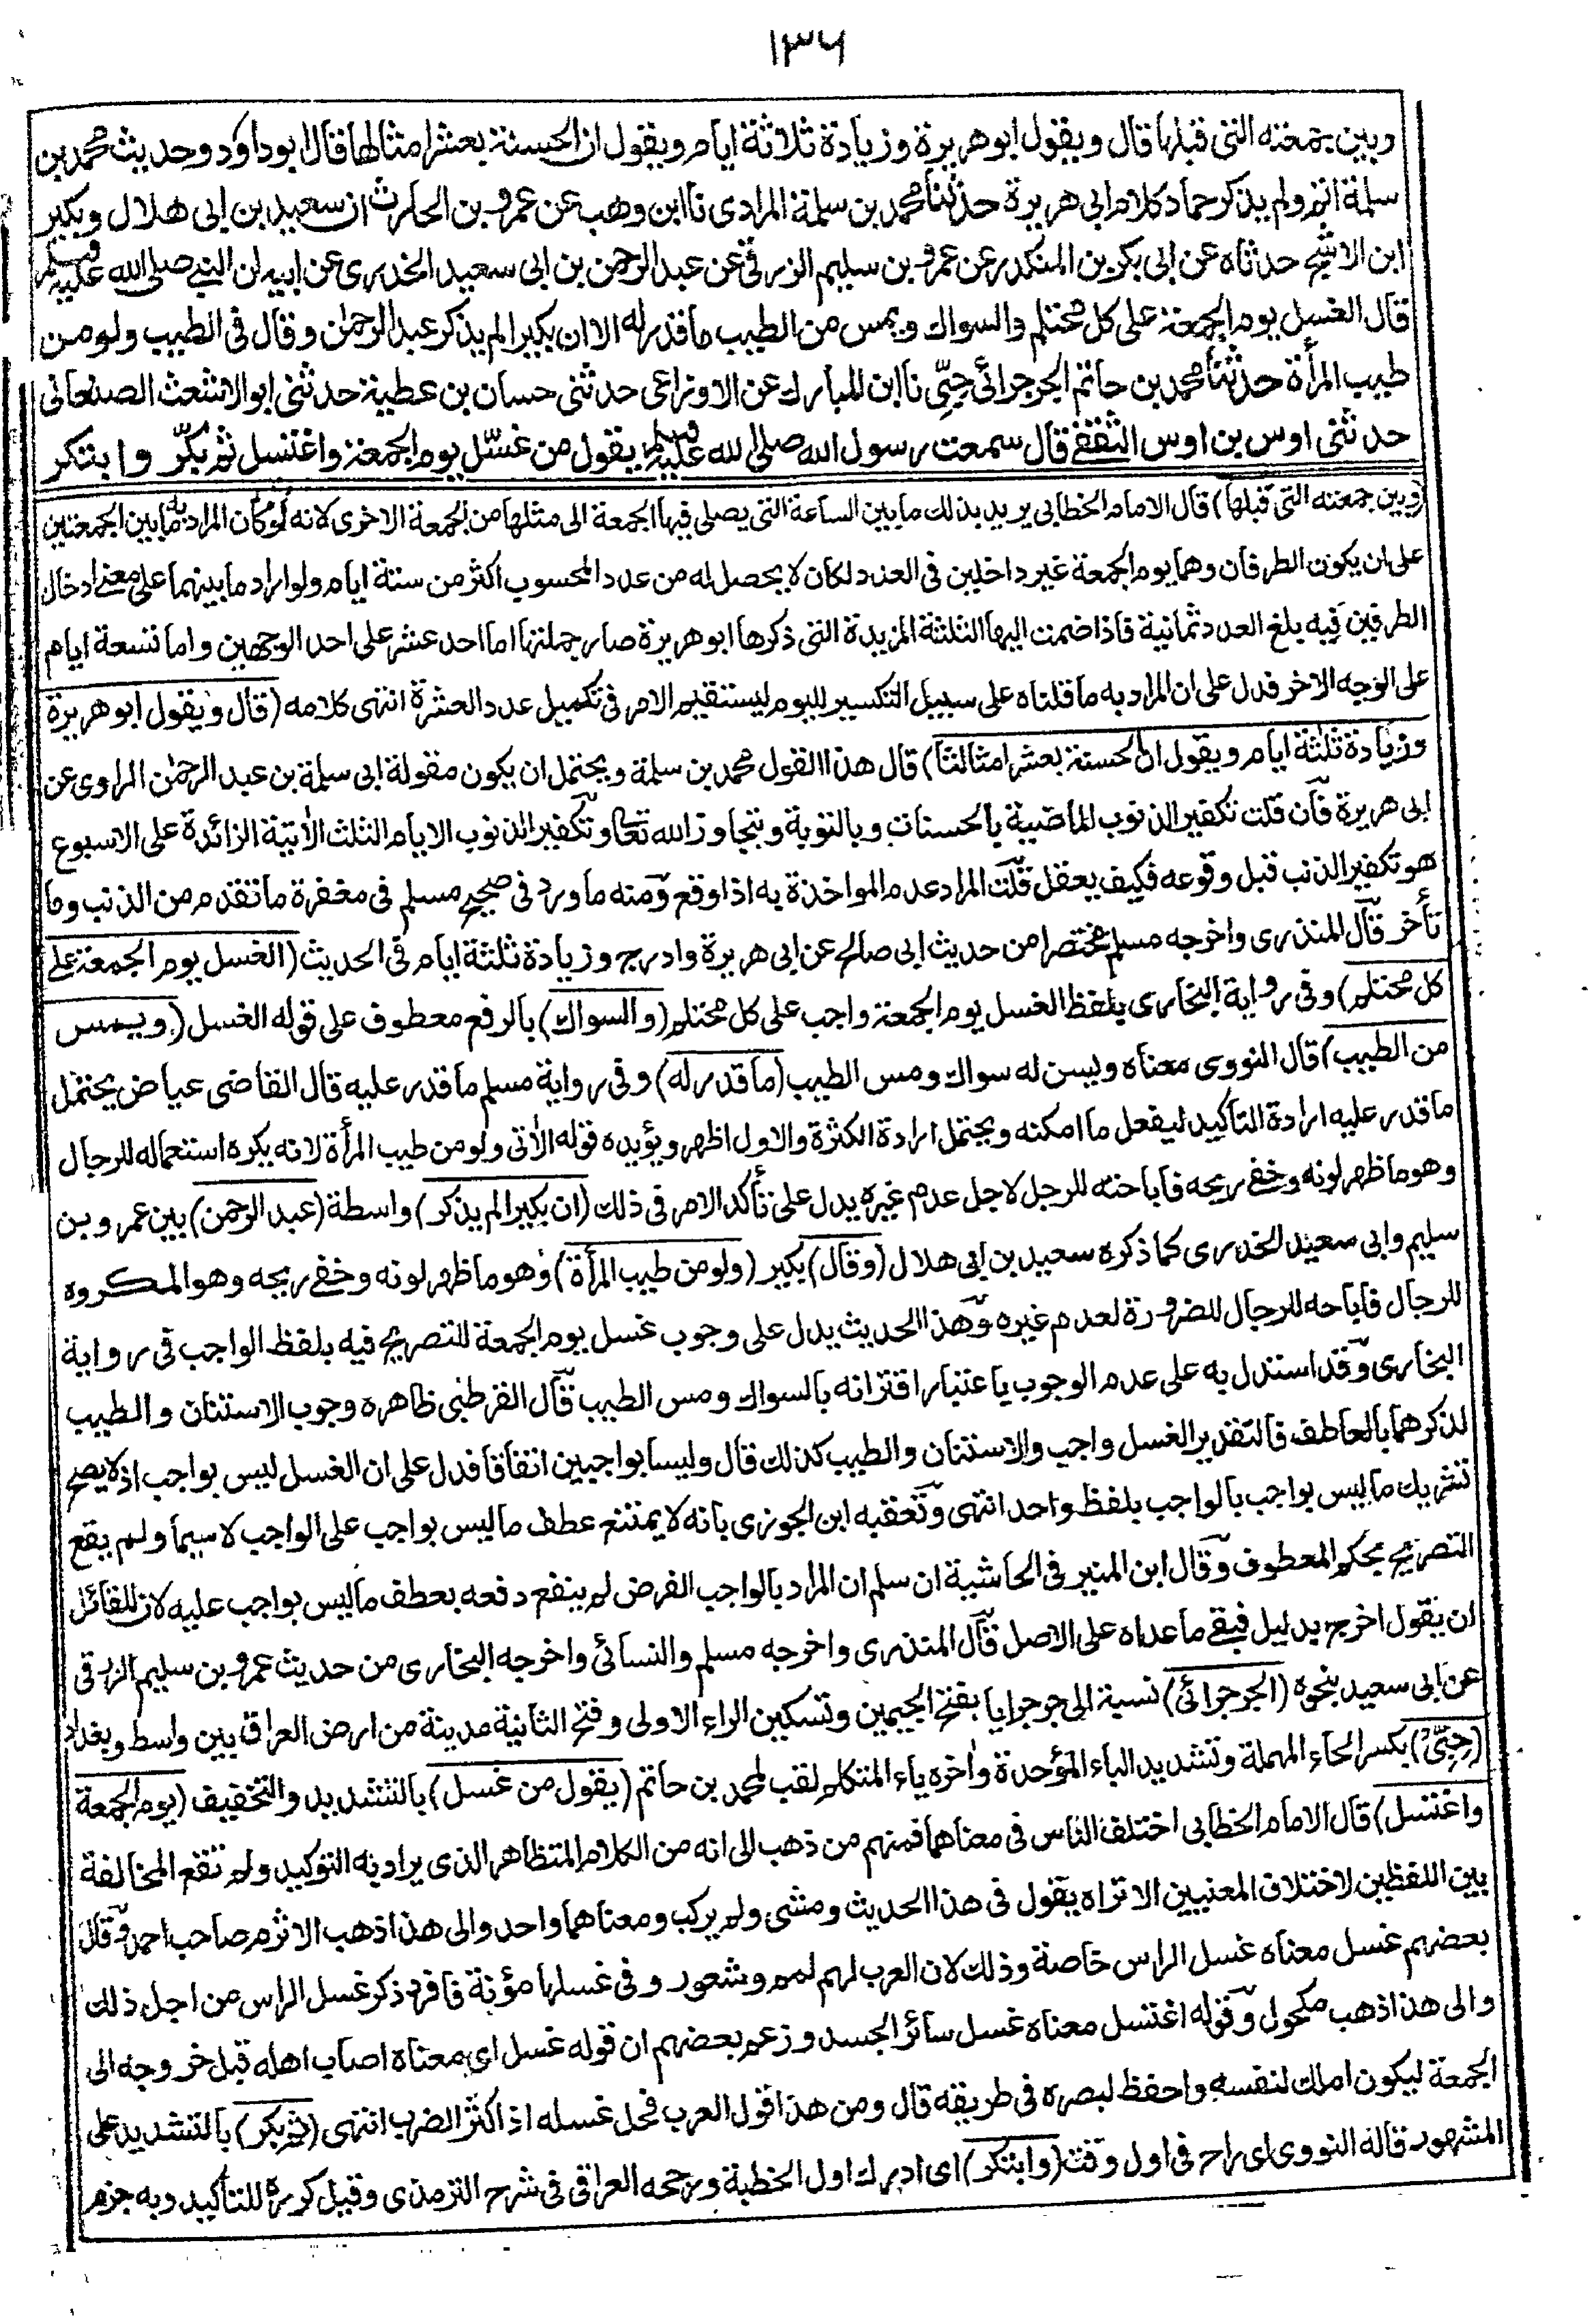 ١٣٦
وبين جمعته التى قبلها قال ويقول ابو هريرة وزيادة ثلاثة ايام ويقول ان الحسنة بعشر امثالها قال ابو داود وحديث محمد بن
سلمة اتم ولم يذكر حماد كلام ابى هريرة حدثنا محمد بن سلمة المرادى نا ابن وهب عن عمرو بن الحارث ان سعيد بن ابى هلال وبكير
ابن الاشج حدثاه عن ابى بكر بن المنكدر عن عمرو بن سليم الزرقى عن عبد الرحمن بن ابى سعيد الخدرى عن ابيه ان النبى صلى الله عليه وسلم
قال الغسل يوم الجمعة على كل محتلم والسواك ويمس من الطيب ما قدر له الا ان بكيرا لم يذكر عبد الرحمٰن وقال فى الطيب ولو من
طيب المرأة حدثنا محمد بن حاتم الجرجرائى حِبِّى نا ابن المبارك عن الاوزاعى حدثنى حسان بن عطية حدثنى ابو الاشعث الصنعانى
حدثنى اوس بن اوس الثقفى قال سمعت رسول الله صلى الله عليه وسلم يقول من غسّل يوم الجمعة واغتسل ثم بكّر وابتكر
(وبين جمعته التى قبلها) قال الامام الخطابى يريد بذلك ما بين الساعة التى يصلى فيها الجمعة الى مثلها من الجمعة الاخرى لانه لو كان المراد به ما بين الجمعتين
على ان يكون الطرفان وهما يوم الجمعة غير داخلين فى العدد لكان لا يحصل له من عدد المحسوب اكثر من ستة ايام ولو اراد ما بينهما على معنى ادخال
الطرفين فيه بلغ العدد ثمانية فاذا ضمت اليها الثلثة المزيدة التى ذكرها ابو هريرة صار جملتها اما احد عشر على احد الوجهين واما تسعة ايام
على الوجه الاخر فدل على ان المراد به ما قلناه على سبيل التكسير لليوم ليستقيم الامر فى تكميل عدد العشرة انتهى كلامه (قال ويقول ابو هريرة
وزيادة ثلثة ايام ويقول ان الحسنة بعشر امثالها) قال هذا القول محمد بن سلمة ويحتمل ان يكون مقولة ابى سلمة بن عبد الرحمٰن الراوى عن
ابى هريرة فان قلت تكفير الذنوب الماضية بالحسنات وبالتوبة وبتجاوز الله تعالى وتكفير الذنوب الايام الثلث الاٰتية الزائدة على الاسبوع
هو تكفير الذنب قبل وقوعه فكيف يعقل قلت المراد عدم المواخذة به اذا وقع ومنه ما ورد فى صحيح مسلم فى مغفرة ما تقدم من الذنب وما
تأخر قال المنذرى واخرجه مسلم مختصرا من حديث ابى صالح عن ابى هريرة وادرج وزيادة ثلثة ايام فى الحديث (الغسل يوم الجمعة على
كل محتلم) وفى رواية البخارى بلفظ الغسل يوم الجمعة واجب على كل محتلم (والسواك) بالرفع معطوف على قوله الغسل (ويمس
من الطيب) قال النووى معناه ويسن له سواك ومس الطيب (ما قدر له) وفى رواية مسلم ما قدر عليه قال القاضى عياض يحتمل
ما قدر عليه ارادة التأكيد ليفعل ما امكنه ويحتمل ارادة الكثرة والاول اظهر ويؤيده قوله الاٰتى ولو من طيب المرأة لانه يكره استعماله للرجال
وهو ما ظهر لونه وخفى ريحه فاباحته للرجل لاجل عدم غيره يدل على تأكد الامر فى ذلك (ان بكيرا لم يذكر) واسطة (عبد الرحمن) بين عمرو بن
سليم وابى سعيد الخدرى كما ذكره سعيد بن ابى هلال (وقال) بكير (ولو من طيب المرأة) وهو ما ظهر لونه وخفى ريحه وهو المكروه
للرجال فاباحه للرجال للضرورة لعدم غيره وهذا الحديث يدل على وجوب غسل يوم الجمعة للتصريح فيه بلفظ الواجب فى رواية
البخارى وقد استدل به على عدم الوجوب باعتبار اقترانه بالسواك ومس الطيب قال القرطبى ظاهره وجوب الاستنان والطيب
لذكرهما بالعاطف فالتقدير الغسل واجب والاستنان والطيب كذلك قال وليسا بواجبين اتفاقا فدل على ان الغسل ليس بواجب اذ لا يصح
تشريك ما ليس بواجب بالواجب بلفظ واحد انتهى وتعقبه ابن الجوزى بانه لا يمتنع عطف ما ليس بواجب على الواجب لا سيما ولم يقع
التصريح بحكم المعطوف وقال ابن المنير فى الحاشية ان سلم ان المراد بالواجب الفرض لم ينفع دفعه بعطف ما ليس بواجب عليه لان للقائل
ان يقول اخرج بدليل فبقى ما عداه على الاصل قال المنذرى واخرجه مسلم والنسائى واخرجه البخارى من حديث عمرو بن سليم الزرقى
عن ابى سعيد بنحوه (الجرجرائى) نسبة الى جرجرايا بفتح الجيمين وتسكين الراء الاولى وفتح الثانية مدينة من ارض العراق بين واسط وبغداد
(حِبِّىْ) بكسر الحاء المهملة وتشديد الباء المؤحدة واٰخره ياء المتكلم لقب لمحمد بن حاتم (يقول من غسل) بالتشديد والتخفيف (يوم الجمعة
واغتسل) قال الامام الخطابى اختلف الناس فى معناهما فمنهم من ذهب الى انه من الكلام المتظاهر الذى يراد به التوكيد ولم تقع المخالفة
بين اللفظين لاختلاف المعنيين الا تراه يقول فى هذا الحديث ومشى ولم يركب ومعناهما واحد والى هذا ذهب الاثرم صاحب احمد وقال
بعضهم غسل معناه غسل الراس خاصة وذلك لان العرب لهم لمم وشعور وفى غسلها مؤنة فافرد ذكر غسل الراس من اجل ذلك
والى هذا ذهب مكحول وقوله اغتسل معناه غسل سائر الجسد وزعم بعضهم ان قوله غسل اى معناه اصاب اهله قبل خروجه الى
الجمعة ليكون املك لنفسه واحفظ لبصره فى طريقه قال ومن هذا قول العرب فحل غسله اذا كثر الضرب انتهى (ثم بكر) بالتشديد على
المشهور قاله النووى اى راح فى اول وقت (وابتكر) اى ادرك اول الخطبة ورجحه العراقى فى شرح الترمذى وقيل كرره للتأكيد وبه جزم